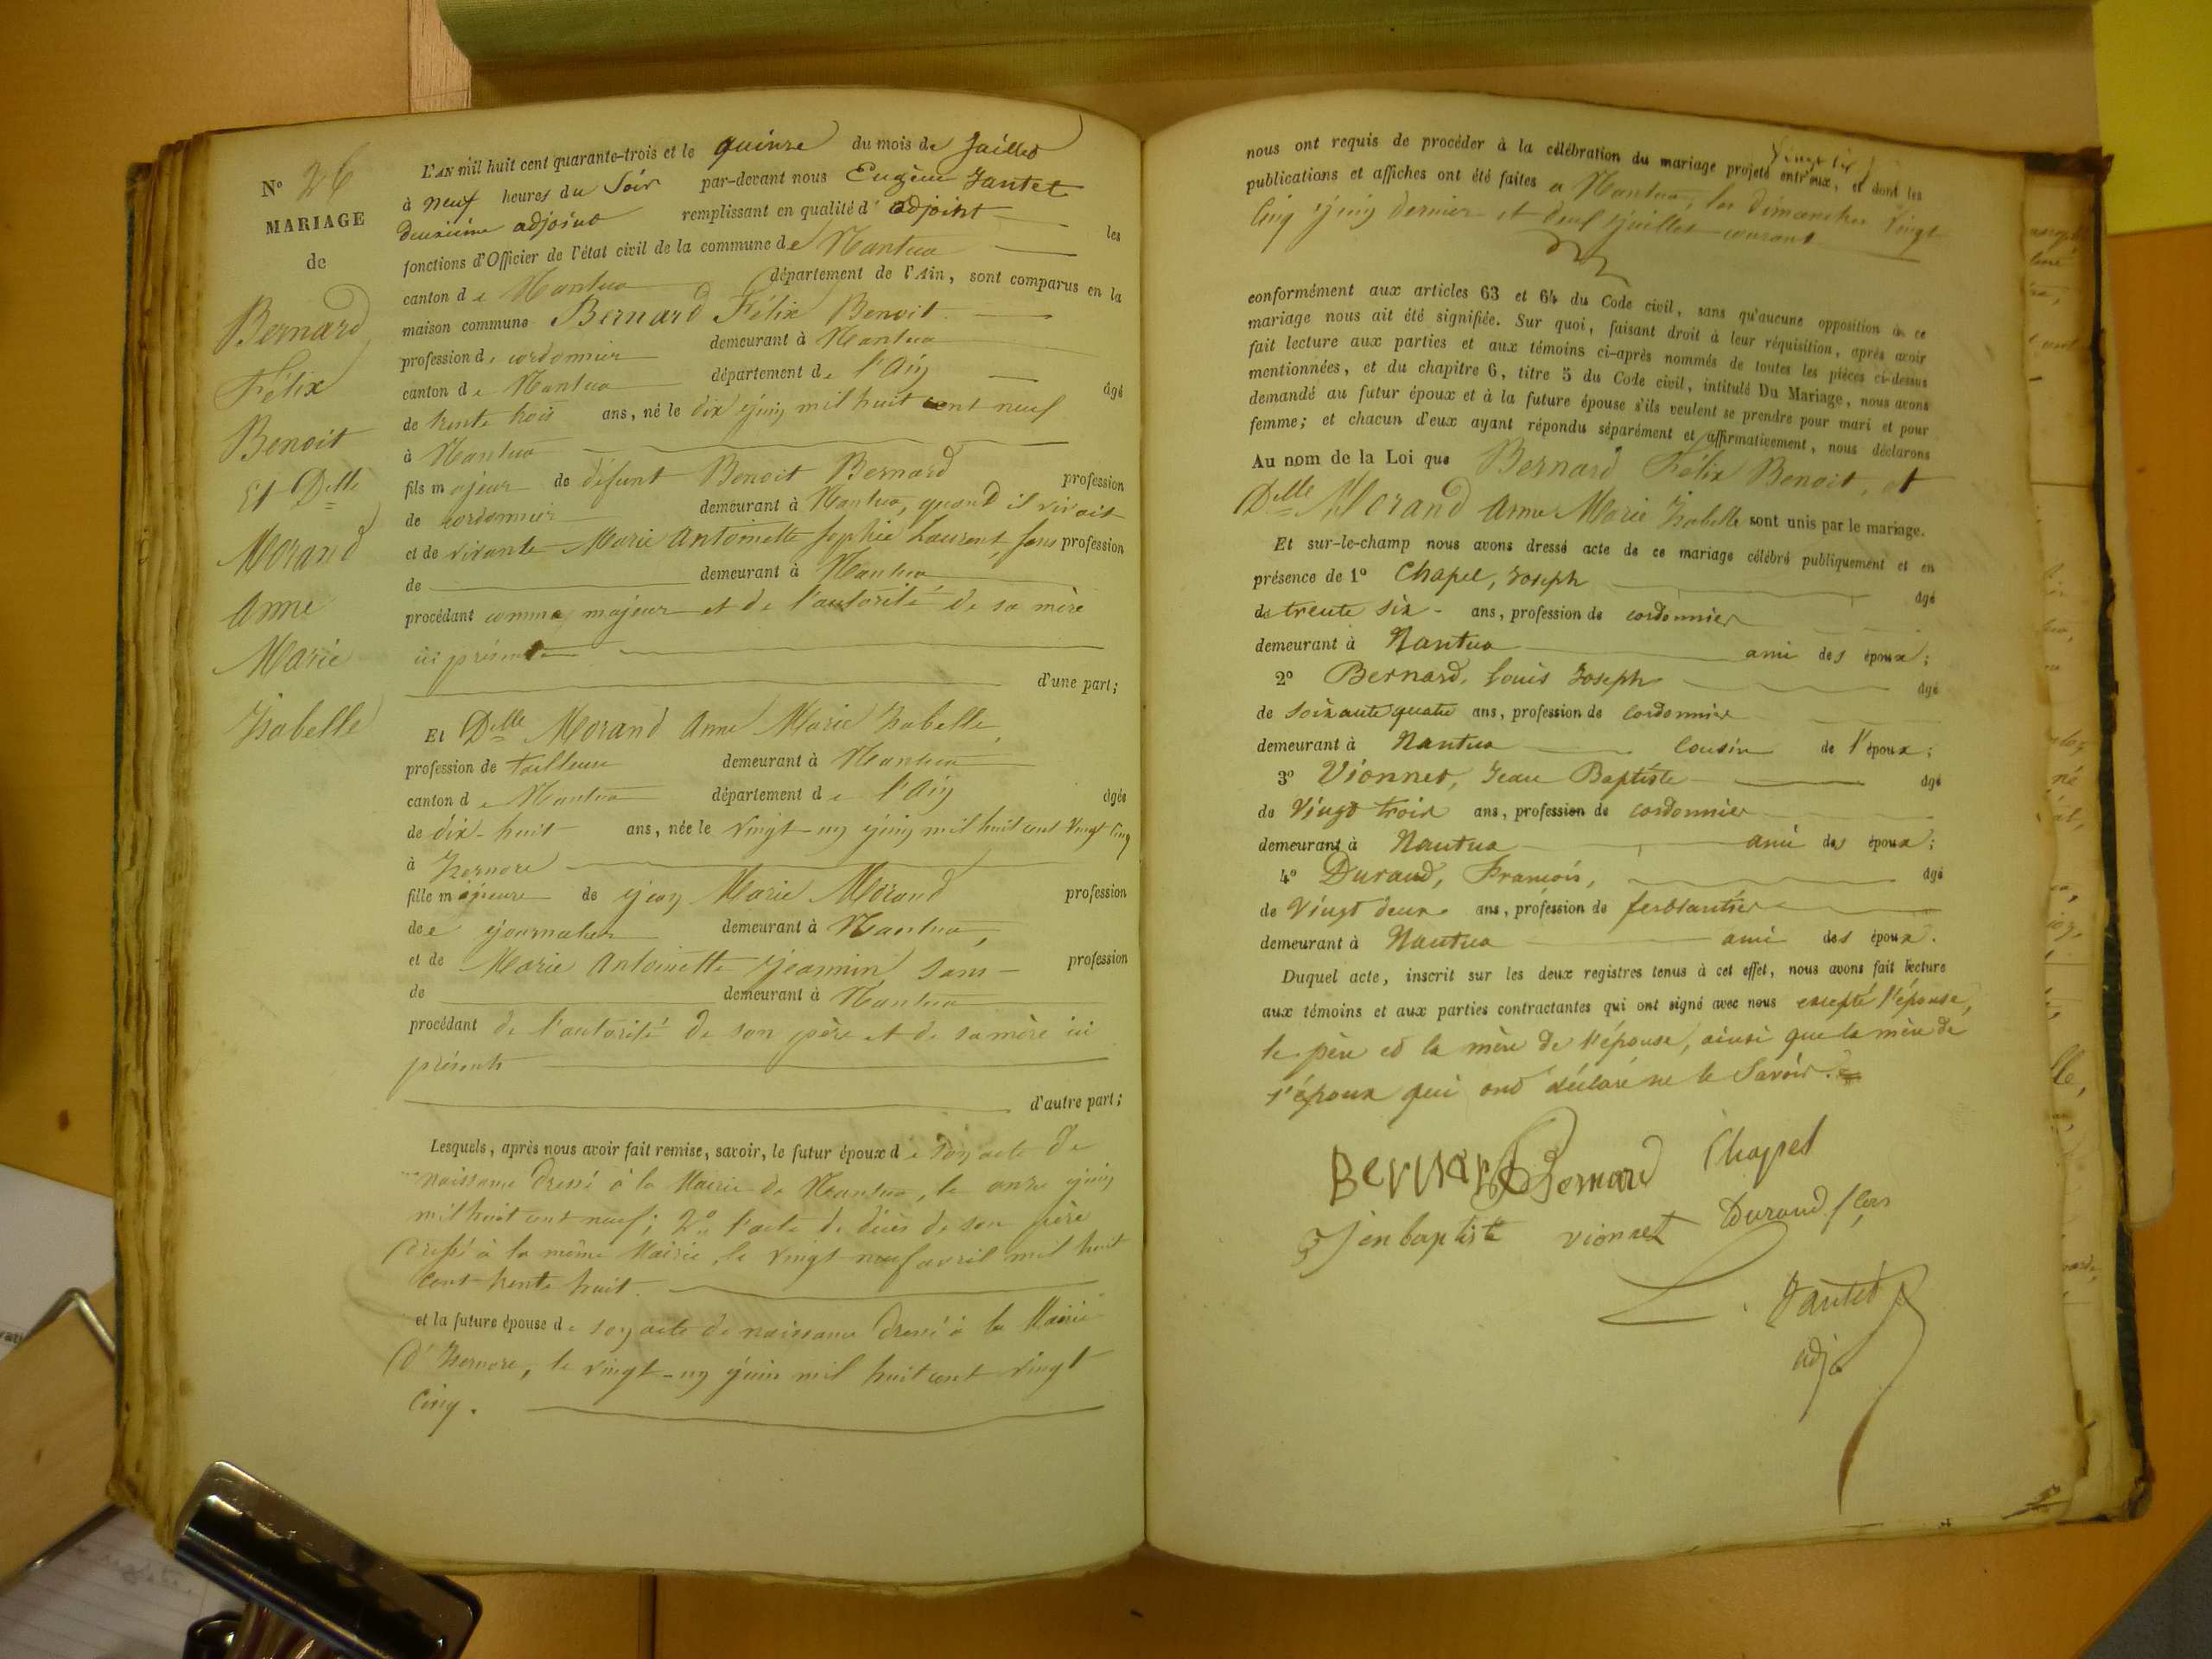 N° 26
MARIAGE
de
Bernard
Félix
Benoit
Et Delle
Morand
Anne
Marie
Isabelle
L'AN mil huit cent quarante-trois et le quinze du mois de Juillet
à neuf heures du Soir par-devant nous Eugène Jantet
deuxième adjoint remplissant en qualité d'adjoint les
fonctions d'Officier de l'état civil de la commune de Nantua
canton de Nantua département de l'Ain, sont comparus en la
maison commune Bernard Félix Benoit
profession de cordonnier demeurant à Nantua
canton de Nantua département de l'Ain âgé
de trente trois ans, né le dix juin mil huit cent neuf
à Nantua
fils majeur de défunt Benoit Bernard profession
de cordonnier demeurant à Nantua, quand il vivait
et de vivante Marie Antoinette Sophie Laurent, sans profession
de demeurant à Nantua
procédant comme majeur et de l'autorité de sa mère
ici présente
d'une part;
Et Delle Morand Anne Marie Isabelle,
profession de tailleuse demeurant à Nantua
canton de Nantua département de l'Ain âgée
de dix-huit ans, née le vingt-un juin mil huit cent vingt cinq
à Izernore
fille majeure de Jean Marie Morand profession
de journalier demeurant à Nantua,
et de Marie Antoinette Jeannin, sans profession
de demeurant à Nantua
procédant de l'autorité de son père et de sa mère ici
présents
d'autre part;
Lesquels, après nous avoir fait remise, savoir, le futur époux de son acte de
naissance dressé à la Mairie de Nantua, le onze juin
mil huit cent neuf; 2° l'acte de décès de son père
dressé à la même Mairie, le vingt neuf avril mil huit
cent trente huit.
et la future épouse de son acte de naissance dressé à la Mairie
d'Izernore, le vingt-un juin mil huit cent vingt
cinq.
nous ont requis de procéder à la célébration du mariage projeté entr'eux, et dont les
publications et affiches ont été faites a Nantua, les dimanches vingt
cinq juin dernier et deux juillet courant
conformément aux articles 63 et 64 du Code civil, sans qu'aucune opposition à ce
mariage nous ait été signifiée. Sur quoi, faisant droit à leur réquisition, après avoir
fait lecture aux parties et aux témoins ci-après nommés de toutes les pièces ci-dessus
mentionnées, et du chapitre 6, titre 5 du Code civil, intitulé Du Mariage, nous avons
demandé au futur époux et à la future épouse s'ils veulent se prendre pour mari et pour
femme; et chacun d'eux ayant répondu séparément et affirmativement, nous déclarons
Au nom de la Loi que Bernard Félix Benoit, et
Delle Morand Anne Marie Isabelle sont unis par le mariage.
Et sur-le-champ nous avons dressé acte de ce mariage célébré publiquement et en
présence de 1° Chapel, Joseph âgé
de trente six ans, profession de cordonnier
demeurant à Nantua ami des époux;
2° Bernard, Louis Joseph âgé
de soixante quatre ans, profession de cordonnier
demeurant à Nantua cousin de l'époux;
3° Vionnet, Jean Baptiste âgé
de Vingt trois ans, profession de cordonnier
demeurant à Nantua ami des époux;
4° Durand, François, âgé
de Vingt deux ans, profession de ferblantier
demeurant à Nantua ami des époux.
Duquel acte, inscrit sur les deux registres tenus à cet effet, nous avons fait lecture
aux témoins et aux parties contractantes qui ont signé avec nous excepté l'épouse,
le père et la mère de l'épouse, ainsi que la mère de
l'époux qui ont déclaré ne le Savoir.
Bernard Bernard Chapel
Jenbaptiste vionnet Durand
Jantet
adj